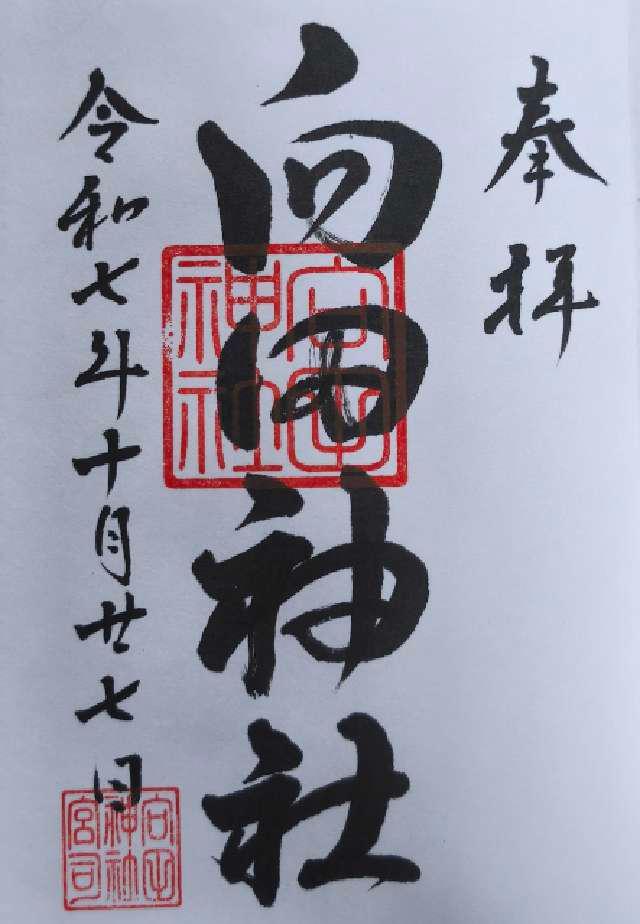 奉拝
向田神社
令和七年十月廿七日
神社
神社
宮司